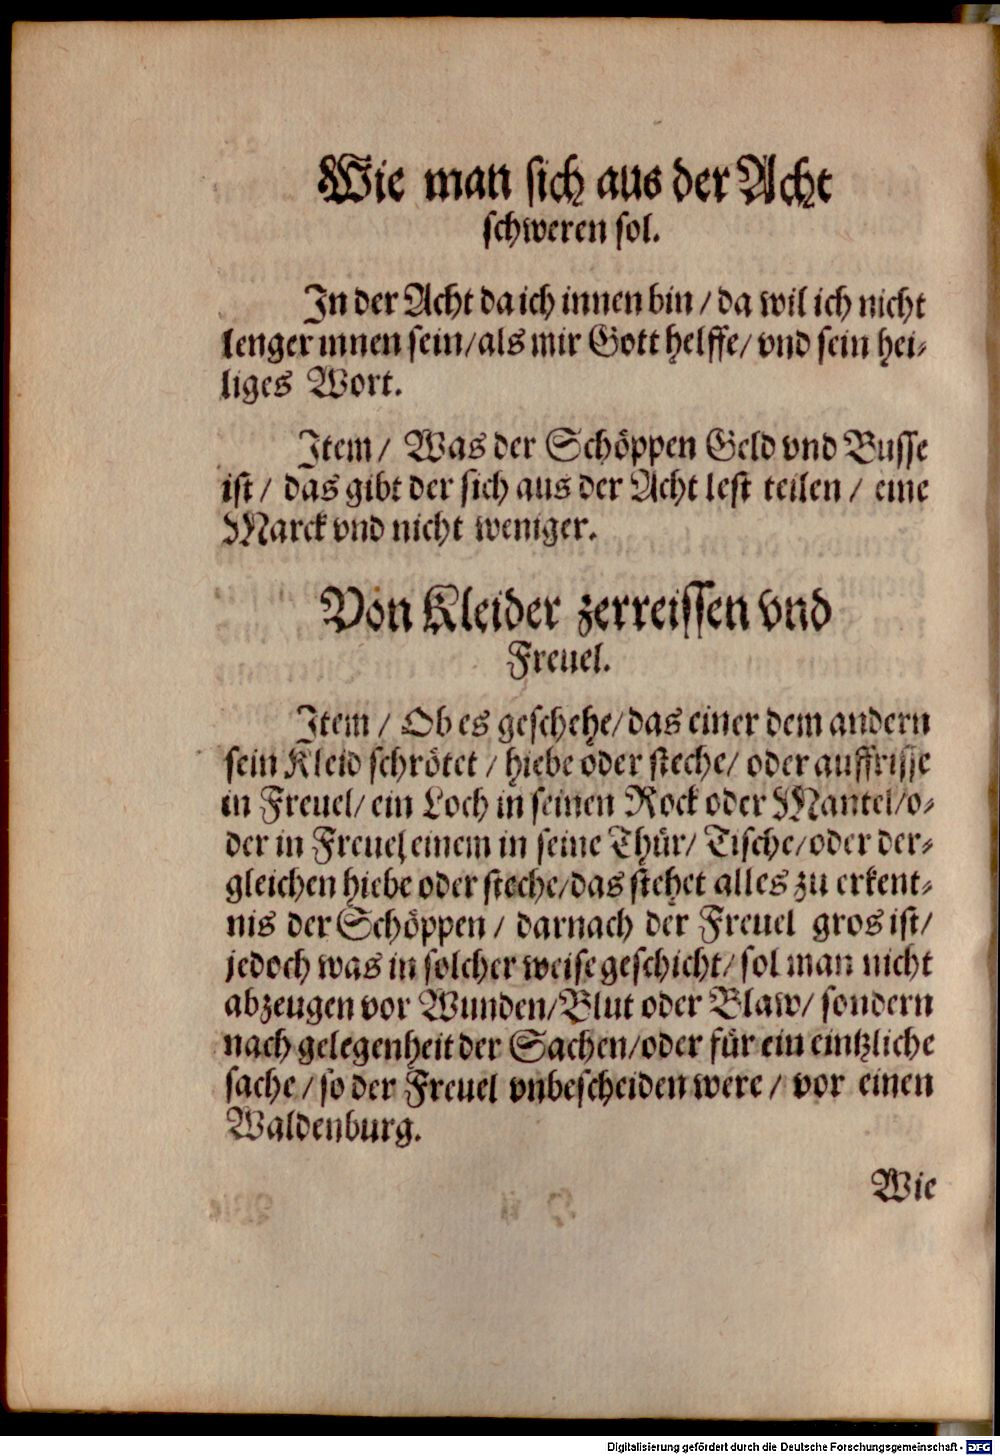 Wie man sich aus der Acht
schweren sol.
In der Acht da ich innen bin / da wil ich nicht
lenger innen sein / als mir Gott helffe / vnd sein hei⸗
liges Wort.
Item / Was der Schöppen Geld vnd Busse
ist / das gibt der sich aus der Acht lest teilen / eine
Marck vnd nicht weniger.
Von Kleider zerreissen vnd
Freuel.
Item / Ob es geschehe / das einer dem andern
sein Kleid schrötet / hiebe oder steche / oder auffrisse
in Freuel / ein Loch in seinen Rock oder Mantel / o⸗
der in Freuel einem in seine Thür / Tische / oder der⸗
gleichen hiebe oder steche / das stehet alles zu erkent⸗
nis der Schöppen / darnach der Freuel gros ist /
jedoch was in solcher weise geschicht / sol man nicht
abzeugen vor Wunden / Blut oder Blaw / sondern
nach gelegenheit der Sachen / oder für ein eintzliche
sache / so der Freuel vnbescheiden were / vor einen
Waldenburg.
Wie
Digitalisierung gefördert durch die Deutsche Forschungsgemeinschaft - DFG